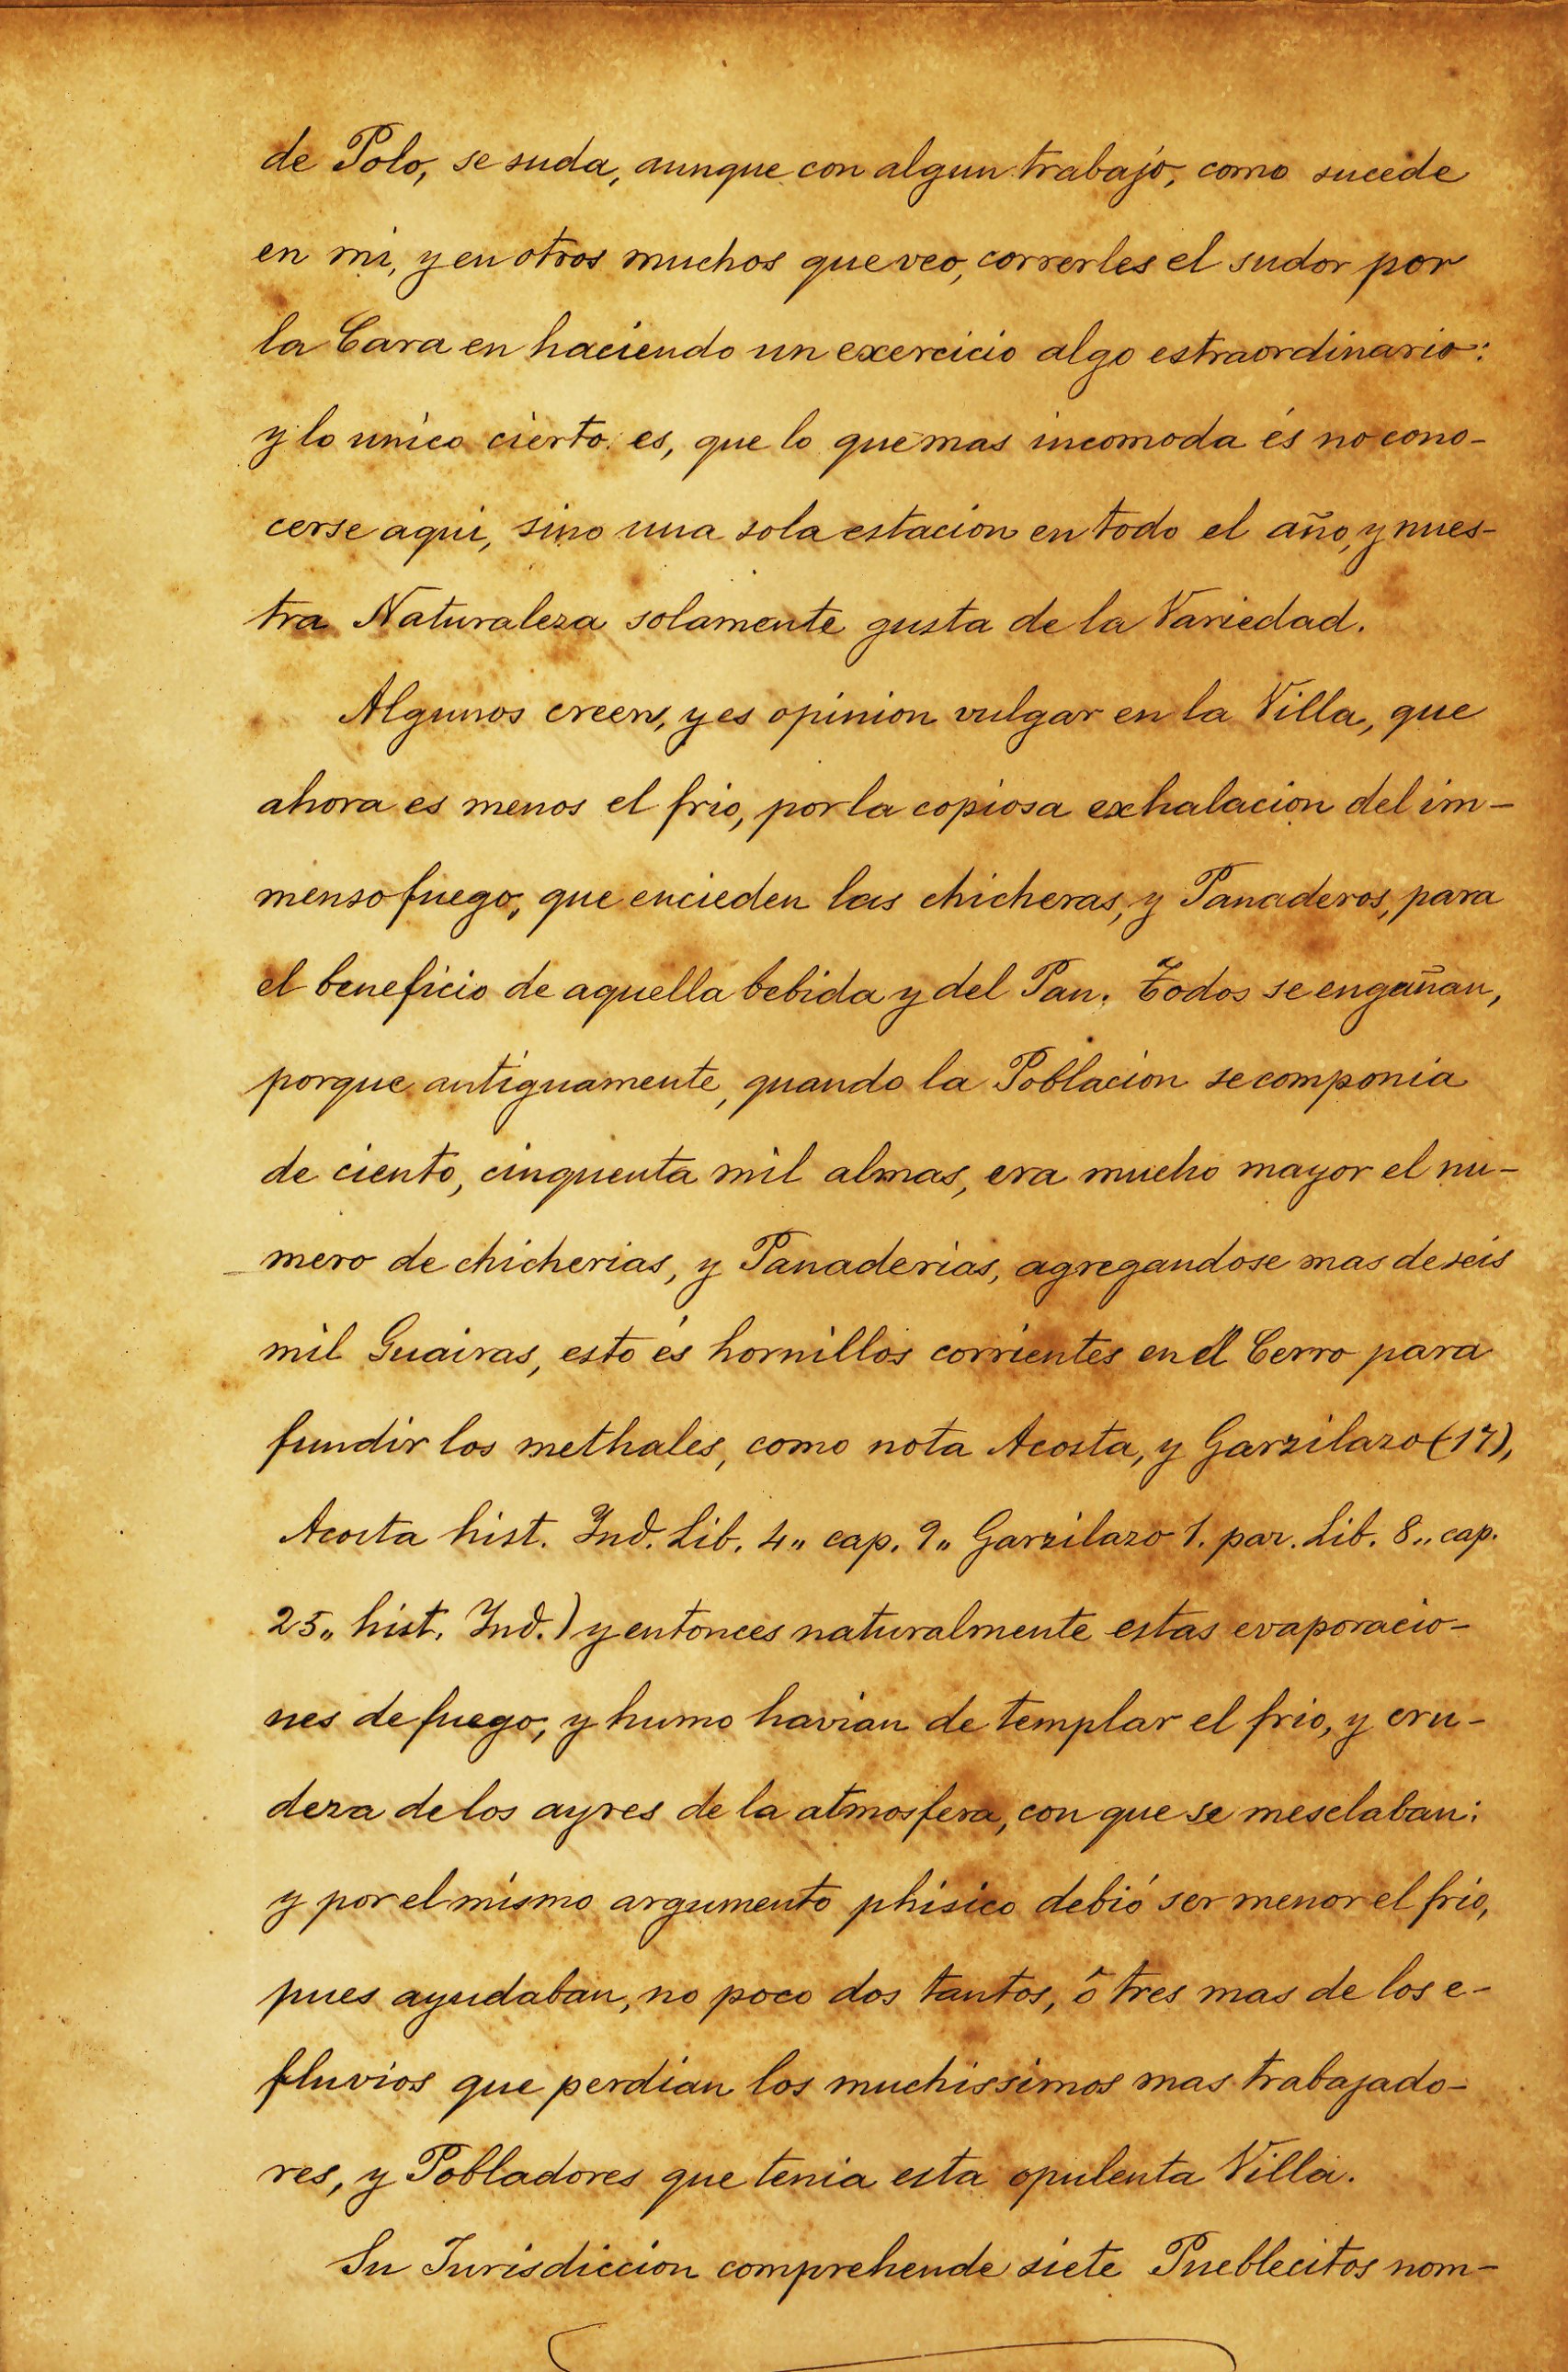 de Polo, se suda, aunque con algun trabajo, como sucede
en mi, y en otros muchos que veo, correrles el sudor por
la Cara en haciendo un exercicio algo estraordinario:
y lo unico cierto es, que lo que mas incomoda és no cono-
cerse aqui, sino una sola estacion en todo el año, y nues-
tra Naturaleza solamente gusta de la Variedad.
Algunos creen, y es opinion vulgar en la Villa, que
ahora es menos el frio, por la copiosa exhalacion del im-
menso fuego, que encieden las chicheras, y Panaderos, para
el beneficio de aquella bebida y del Pan. Todos se engañan,
porque antiguamente, quando la Poblacion se componia
de ciento, cinquenta mil almas, era mucho mayor el nu-
mero de chicherias, y Panaderias, agregandose mas de seis
mil Guairas, esto és hornillos corrientes en el Cerro para
fundir los methales, como nota Acosta, y Garzilazo (17),
Acosta hist. Ind. Lib. 4,, cap. 9,, Garzilazo 1. par. Lib. 8,, cap.
25,, hist. Ind.) y entonces naturalmente estas evaporacio-
nes de fuego, y humo havian de templar el frio, y cru-
deza de los ayres de la atmosfera, con que se mesclaban:
y por el mismo argumento phisico debió ser menor el frio,
pues ayudaban, no poco dos tantos, ô tres mas de los e-
fluvios que perdian los muchissimos mas trabajado-
res, y Pobladores que tenia esta opulenta Villa.
Su Jurisdiccion comprehende siete Pueblecitos nom-